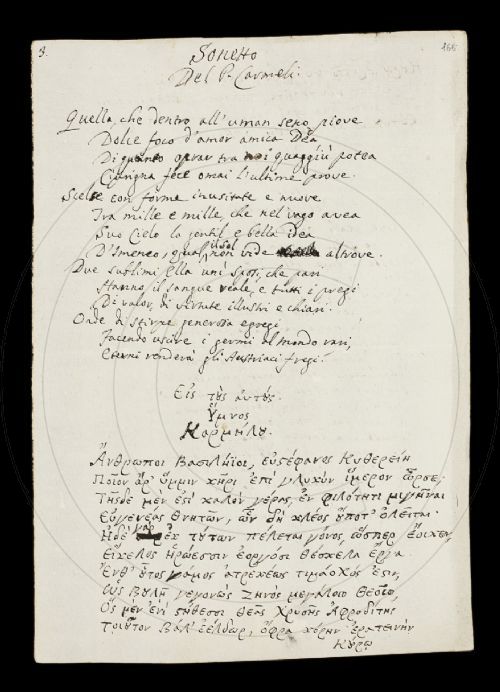 3.
166
Sonetto
Del P. Carmeli.
Quella, che dentro all'uman seno piove
Dolce foco d'amor amica Dea
Di quanto oprar tra noi quaggiù potea
Giugna fece omai l'ultime prove.
Scelse con forme inusitate e nuove
Tra mille e mille, che nel vago avea
Suo Cielo la gentil e bella idea
D'Imeneo, qual il sol non vide altrove.
Due sublimi Ella unì Sposi, che pari
Hanno il sangue reale, e tutti i pregi
Di valor, di virtute illustri e chiari.
Onde di stirpe generosa egregi
Facendo uscire i germi al mondo rari,
Eterni renderà gli Austriaci fregi.
Εἰς τὺς αὐτύς.
Ὕμνος
Καρμήλυ.
Ἄνθρωποι Βασιλήϊοι, εὐστέφανος Κυθερείη
Ποῖον ἄρ' ὔμμιν κῆρι ἐπὶ γλυκὺν ἵμερον ὦρσε;
Τῆσδε μέν ἐστι καλὸν γέρας, ἐν φιλότητι μιγῆναι
Εὐγενέας θνητῶν, ὧν δὴ κλέος ὔποτ' ὀλεῖται.
Ἠδὲ γὰρ ἐκ τύτων πέλεται γόνος, ὥσπερ ἔοικεν,
Εἴκελος Ἡρώεσσιν ἐοργόσι θέσκελα ἔργα.
Ἔνθ' ὗτος γάμος ἀτρεκέως τιμάοχός ἐστιν,
Ὡς βυλῇ γεγονὼς Ζηνὸς μεγάλοιο Θεοῖο,
Ὃς μὲν ἐνὶ στήθεσσι θεᾶς Χρυσῆς Ἀφροδίτης
Τοιῦτον βάλ' ἐέλδωρ, ὄφρα κόρην ἐρατεινήν
Κύρῳ